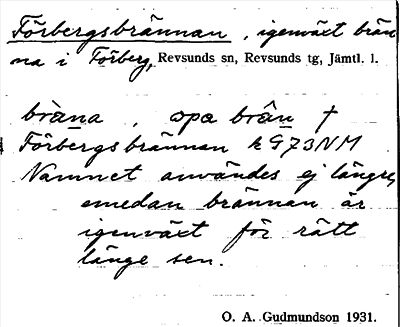 Förbergsbrännan, igenväxt brän
na i Förberg, Revsunds sn, Revsunds tg, Jämtl. l.
bràna, opa brân †
Förbergsbrännan k G73NM
Namnet användes ej längre,
emedan brännan är
igenväxt för rätt
länge sen.
O. A. Gudmundson 1931.